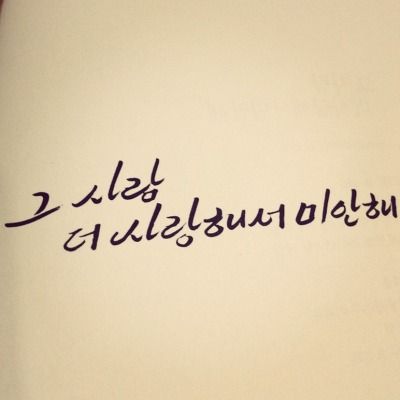 그 사람
더 사랑해서 미안해